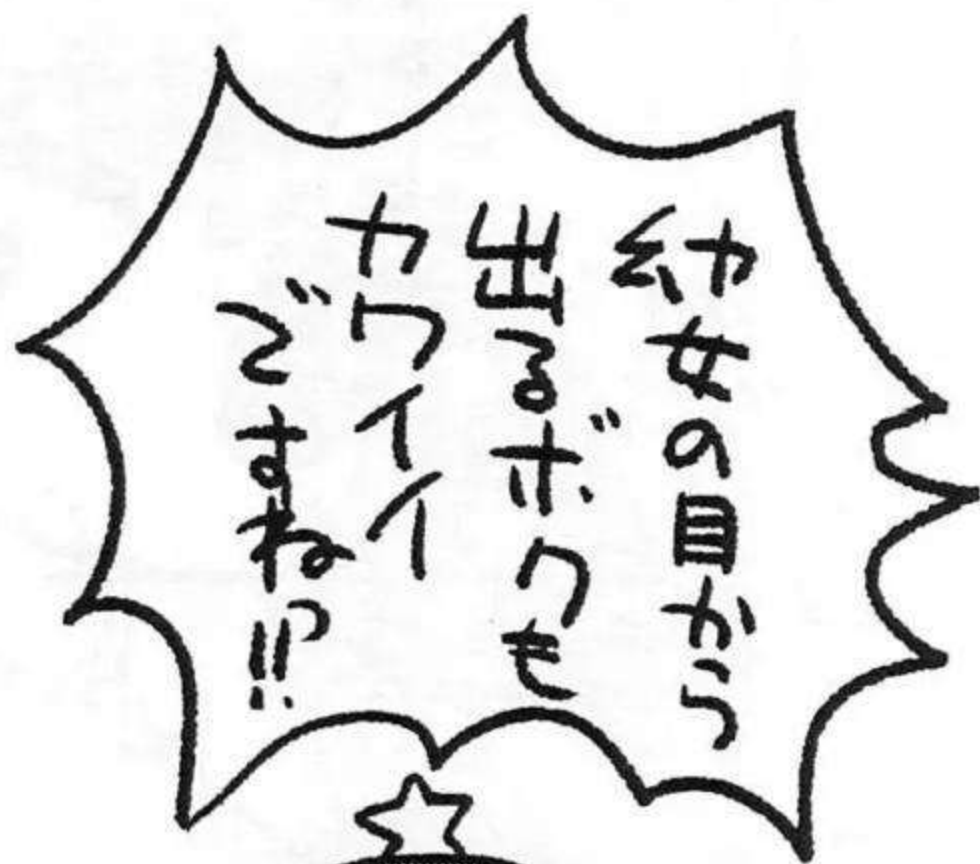 幼女の目から
出るボクも
カワイイ
ですねっ!!